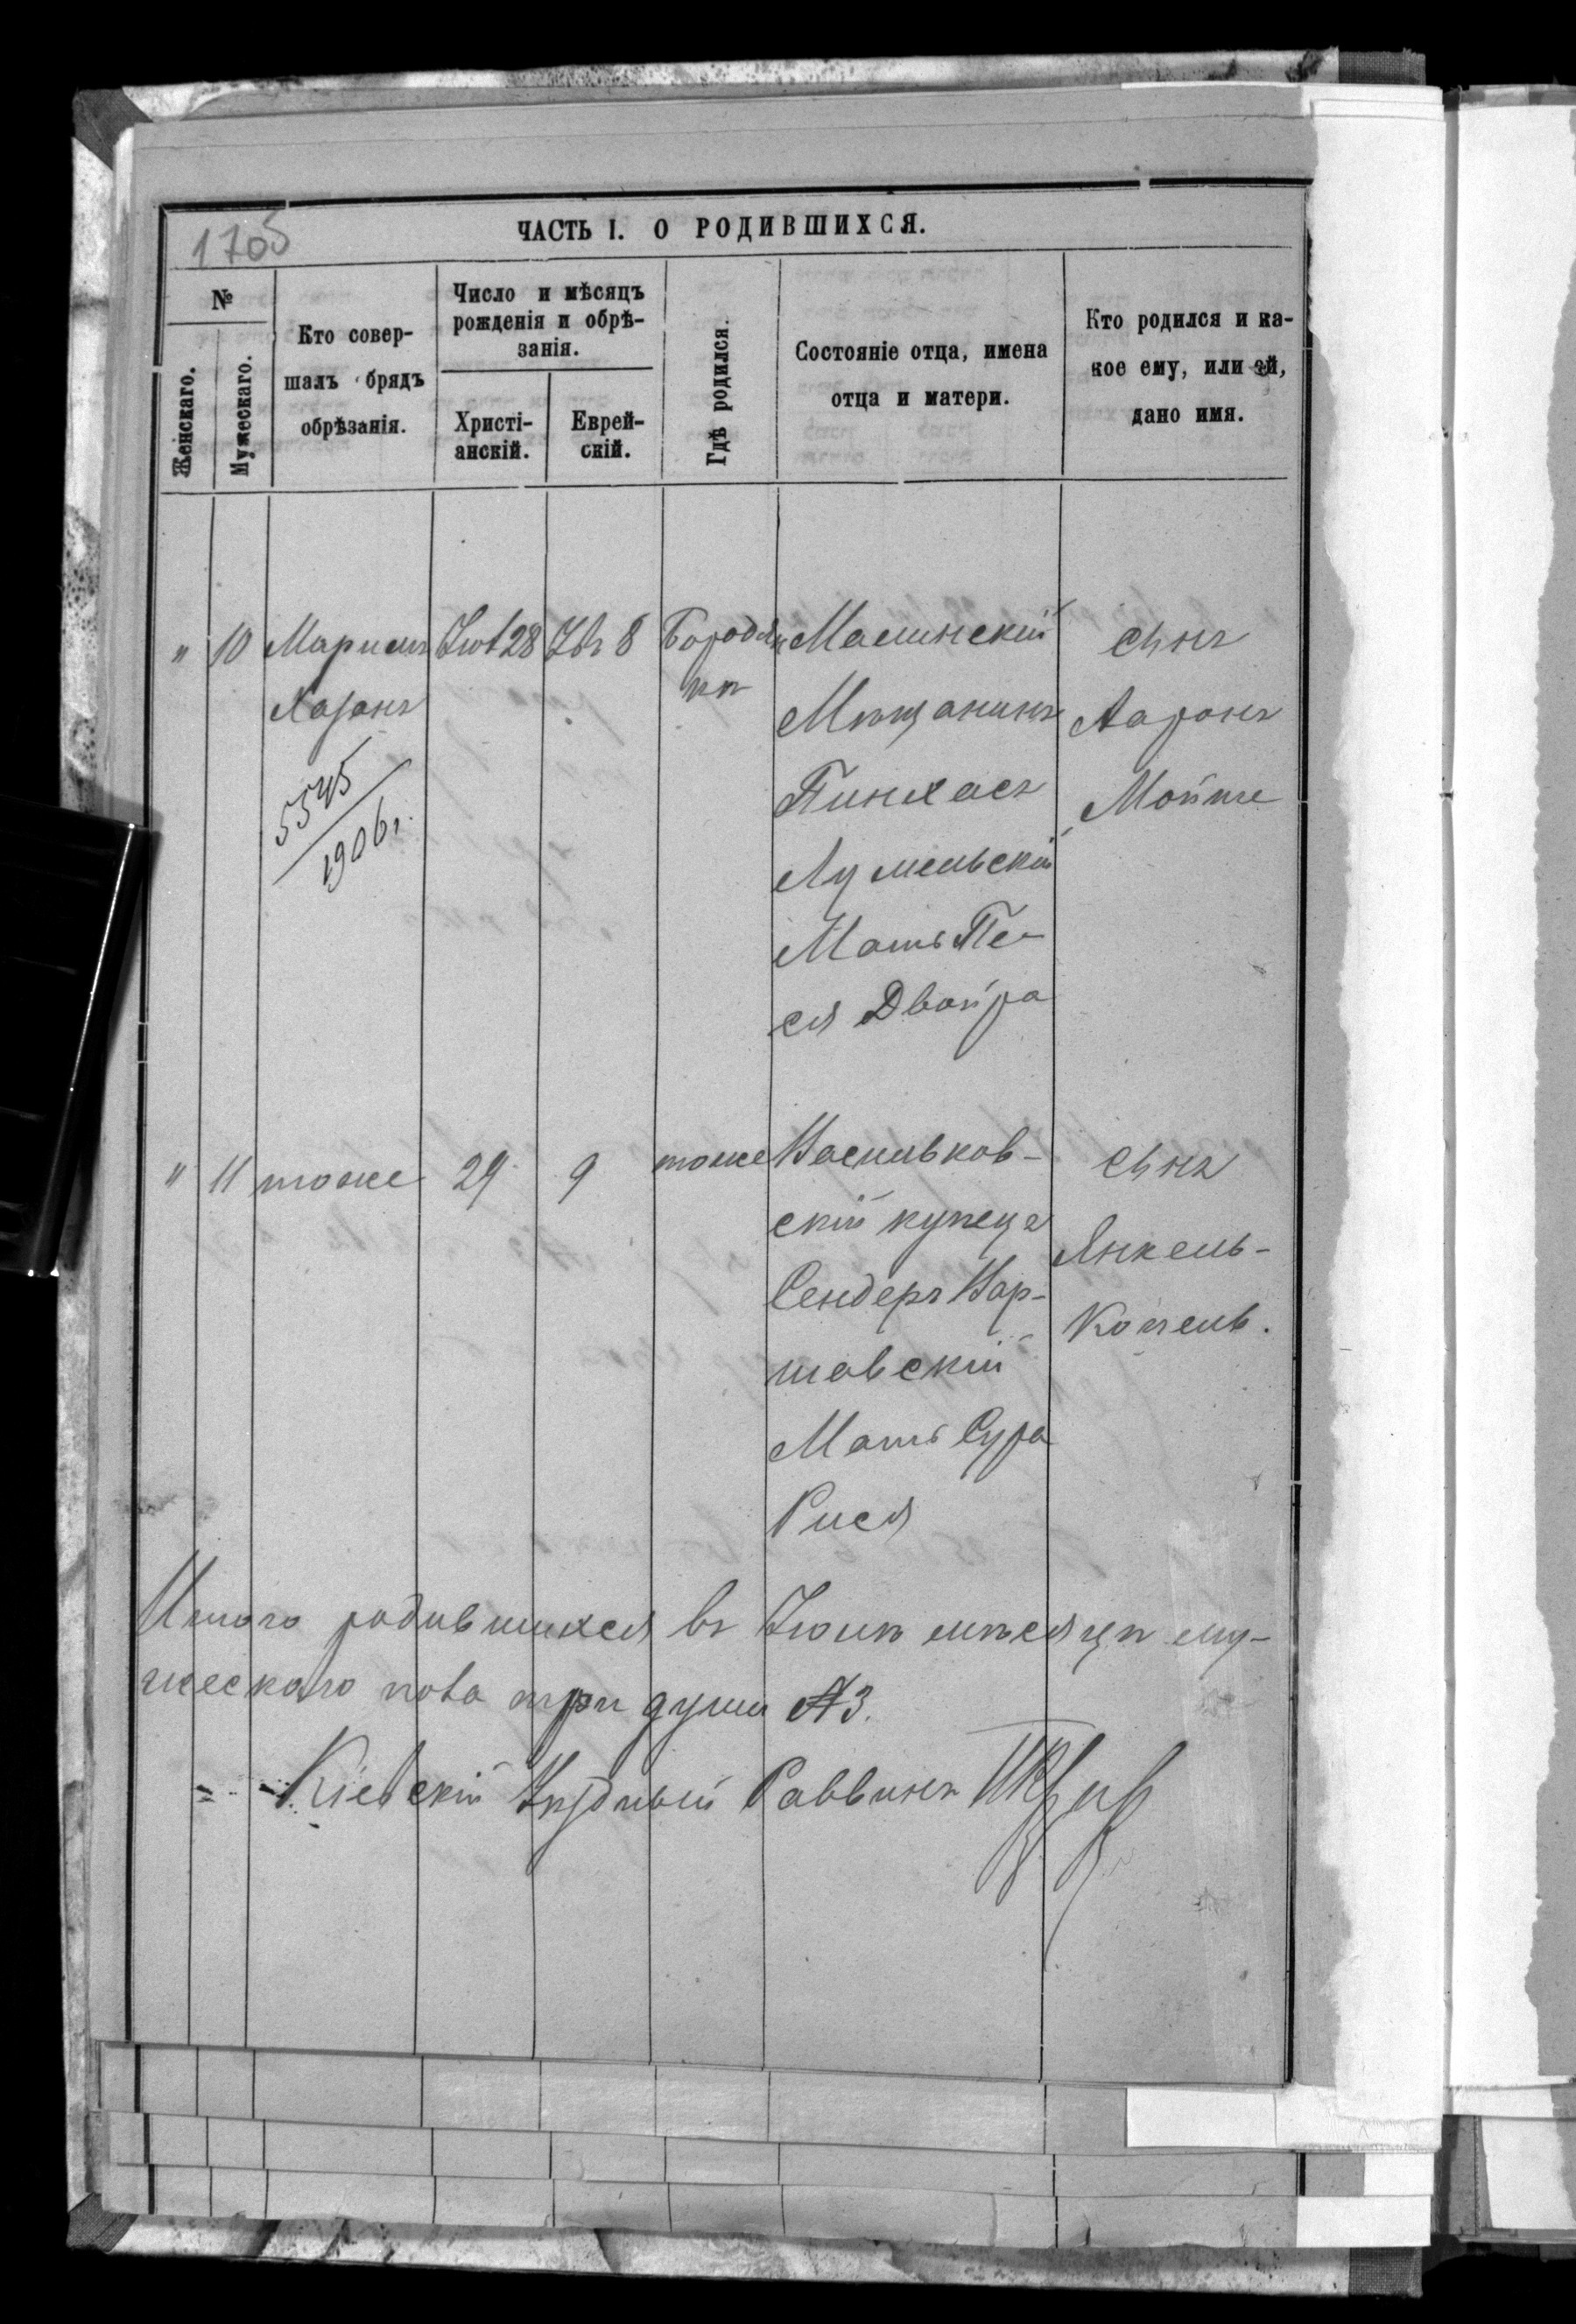 1705
ЧАСТЬ I. О РОДИВШИХСЯ.
№
Женскаго.
Мужескаго.
Кто совер-
шалъ обрядъ
обрѣзанія.
Число и мѣсяцъ
рожденія и обрѣ-
занія.
Христі-
анскій.
Еврей-
скій.
Гдѣ родился.
Состояніе отца, имена
отца и матери.
Кто родился и ка-
кое ему, или ей,
дано имя.
" 10
Хазанъ
5545
1906 г.
28
8
Бородян
кѣ
Мѣщанинъ
Пинхасъ
Мать Пе-
ся Двойра
Сынъ
Ааронъ
Мойше
" 11
тоже
29
9
тоже
Васильков-
скій купецъ
Сендеръ Вар-
шавскій
Мать Сура
Рися
Сынъ
Янкель-
Копель.
Итого родившихся въ Іюлѣ мѣсяцѣ му-
жескаго пола три души №3.
Кіевскій Уѣздный Раввинъ